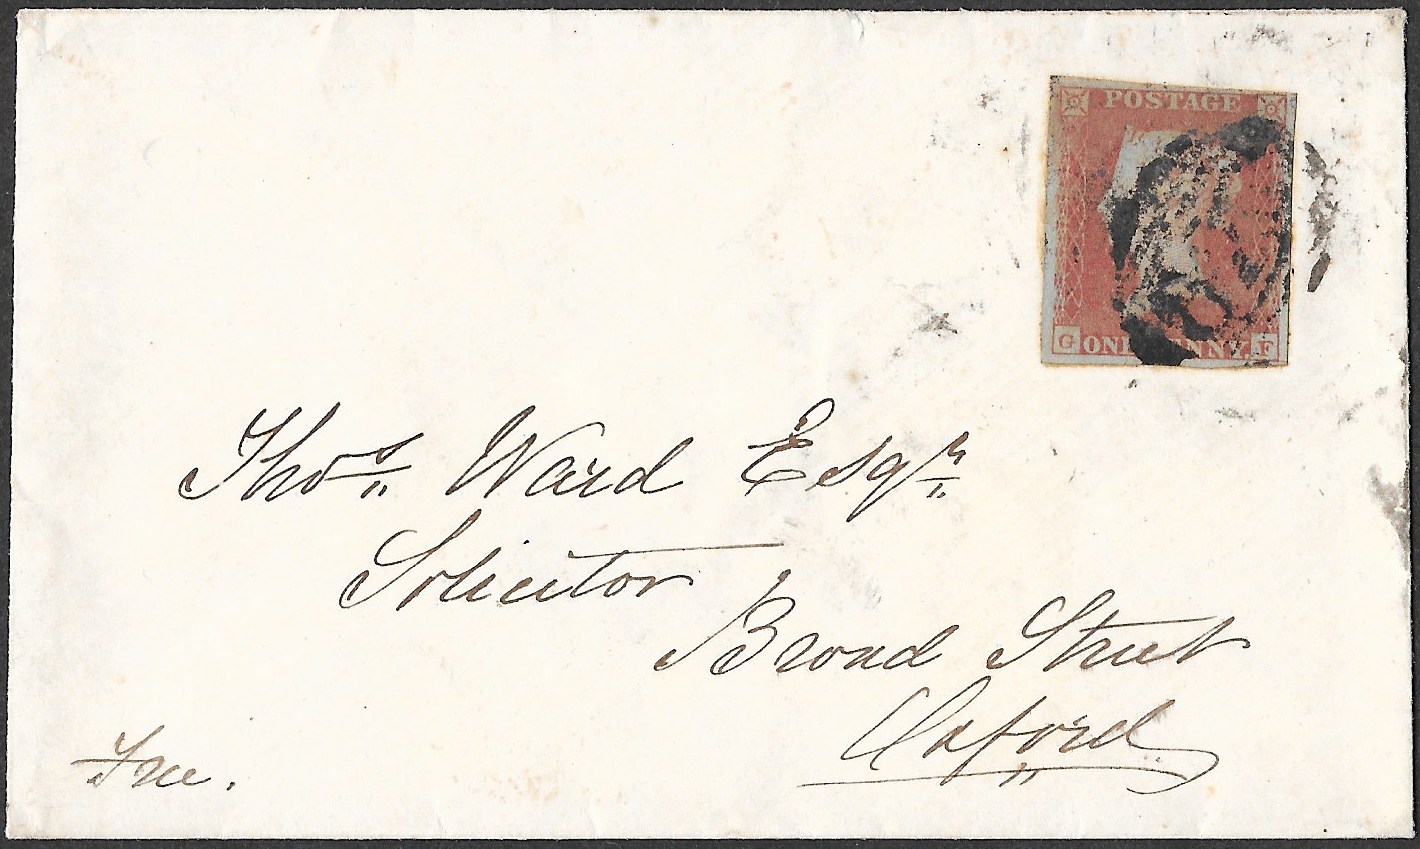 POSTAGE
G ONE PENNY. F
Thos. Ward Esqr.
Solicitor
Broad Street
Oxford
Free.